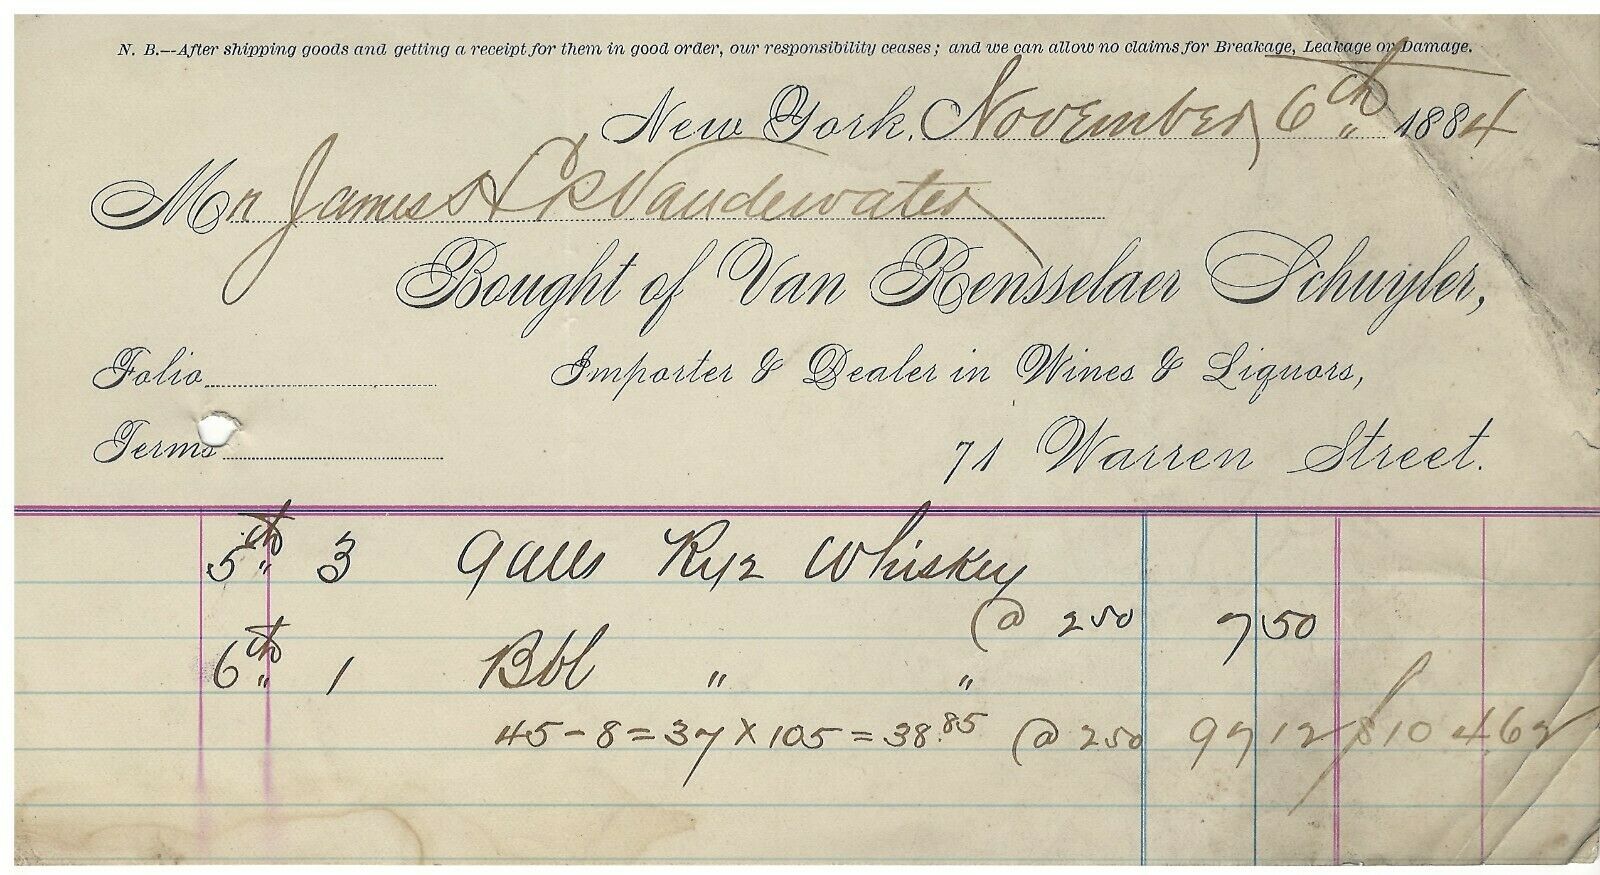 N. B.--After shipping goods and getting a receipt for them in good order, our responsibility ceases; and we can allow no claims for Breakage, Leakage or Damage.
New York, November 6th 1884
Mr James Vandewater
Bought of Van Rensselaer Schuyler,
Folio
Importer & Dealer in Wines & Liquors,
Terms
71 Warren Street.
5th 3 Galls Rye Whiskey
@ 250 7 50
6th 1 Bbl " "
45 - 8 = 37 x 105 = 38.85 @ 250 97 12 $104 62